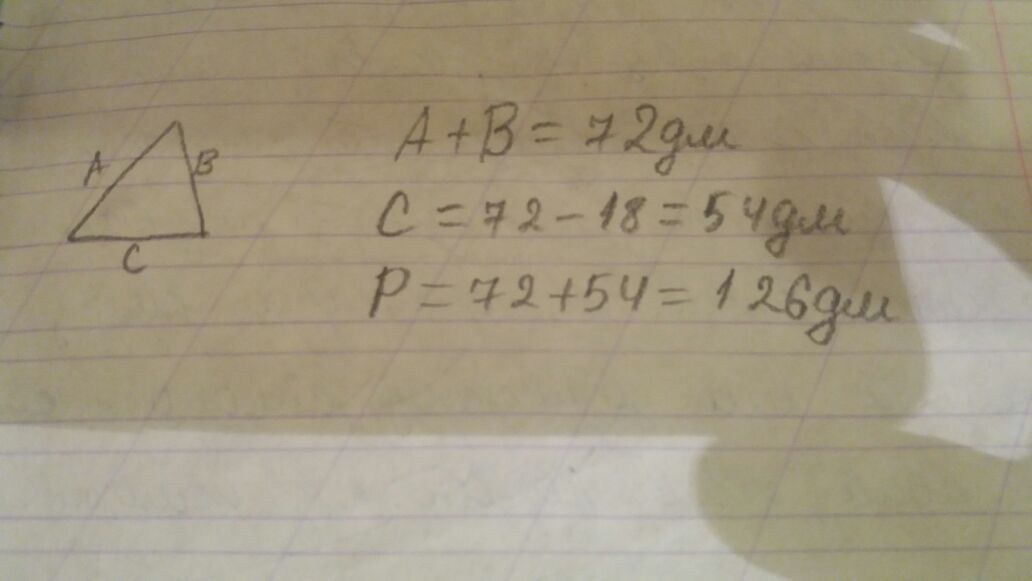 A
B
C
A + B = 72дм
C = 72 - 18 = 54дм
P = 72 + 54 = 126дм